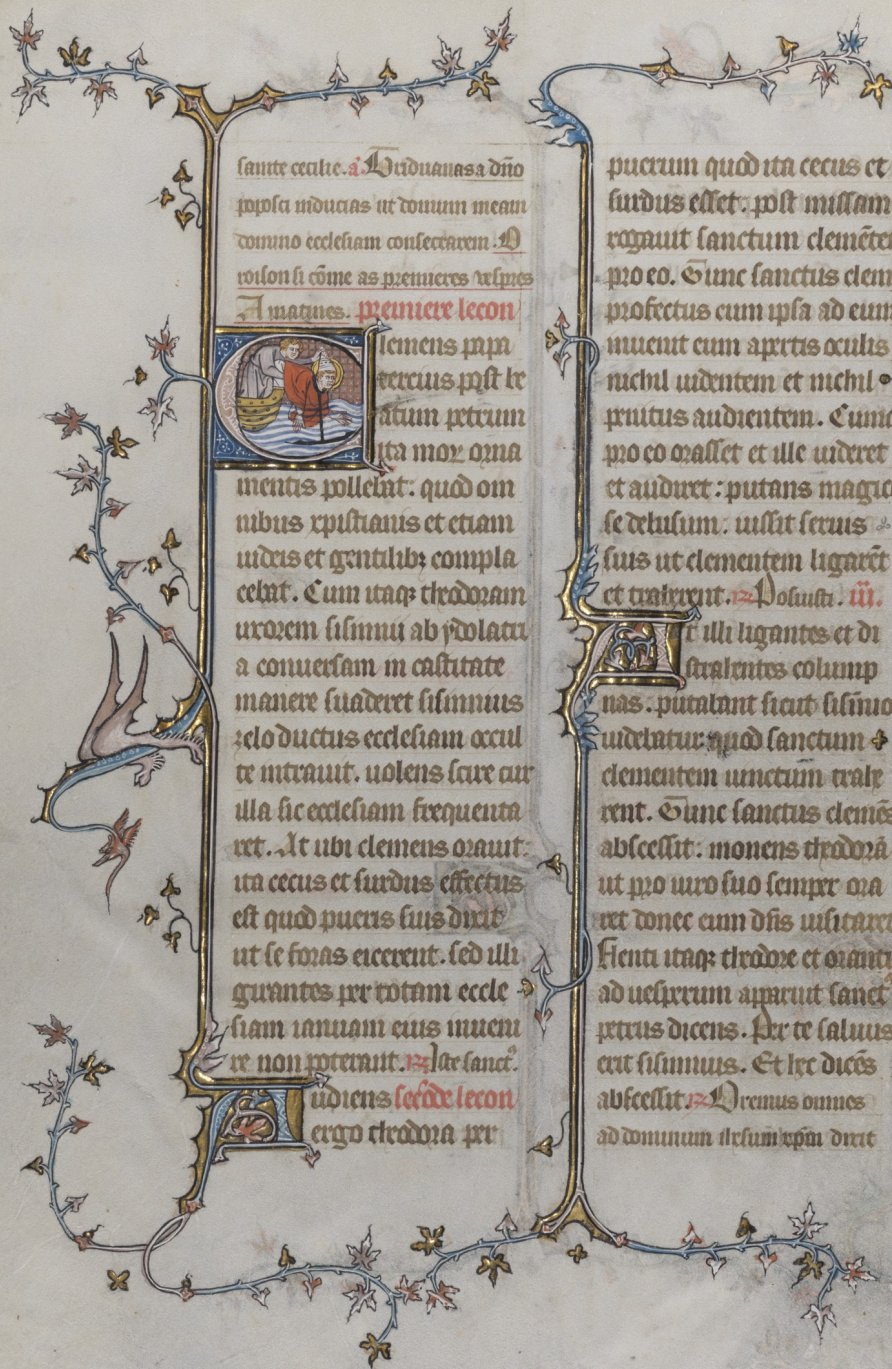 sainte cecilie. a͛ Triduanas a dño
poposci inducias ut domum meam
domino ecclesiam consecrarem. O
roison si cõme as premieres vespres
A matines. premiere lecon
Clemens papa
tercius post be
atum petrum
ita mor orna
mentis pollebat: quod om
nibus xpistianis et etiam
iudeis et gentilibꝫ compla
cebat. Cum itaqꝫ theodoram
uxorem sisinnii ab ydolatri
a conuersam in castitate
manere suaderet sisinnius
zelo ductus ecclesiam occul
te intrauit. uolens scire cur
illa sic ecclesiam frequenta
ret. At ubi clemens orauit:
ita cecus et surdus effectus
est quod pueris suis dixit
ut se foras eicerent. sed illi
girantes per totam eccle
siam ianuam eius inueni
re non poterant. ℟ Iste sanctꝰ.
Audiens secõde lecon
ergo theodora per
puerum quod ita cecus et
surdus esset. post missam
rogauit sanctum clemẽte
pro eo. Tunc sanctus clem
profectus cum ipsa ad eum
inuenit eum apertis oculis
nichil uidentem et nichil
penitus audientem. Cum
pro eo orasset et ille uideret
et audiret: putans magic
se delusum. iussit seruis
suis ut clementem ligarẽt
et traherent. ℟ Posuisti. iii.
At illi ligantes et di
stralentes colump
nas. putabant sicut sisiñio
uidebatur quod sanctum
clementem uinctum trahe
rent. Tunc sanctus clemẽs
abscessit: monens theodorã
ut pro uiro suo semper ora
ret donec eum dñs uisitaret
Flenti itaqꝫ theodore et oranti
ad uesperum apparuit sanctꝰ
petrus dicens. Per te saluus
erit sisinnius. Et hec dicẽs
abscessit. ℟ Oremus omnes
ad dominum ihesum xp̃m dixit